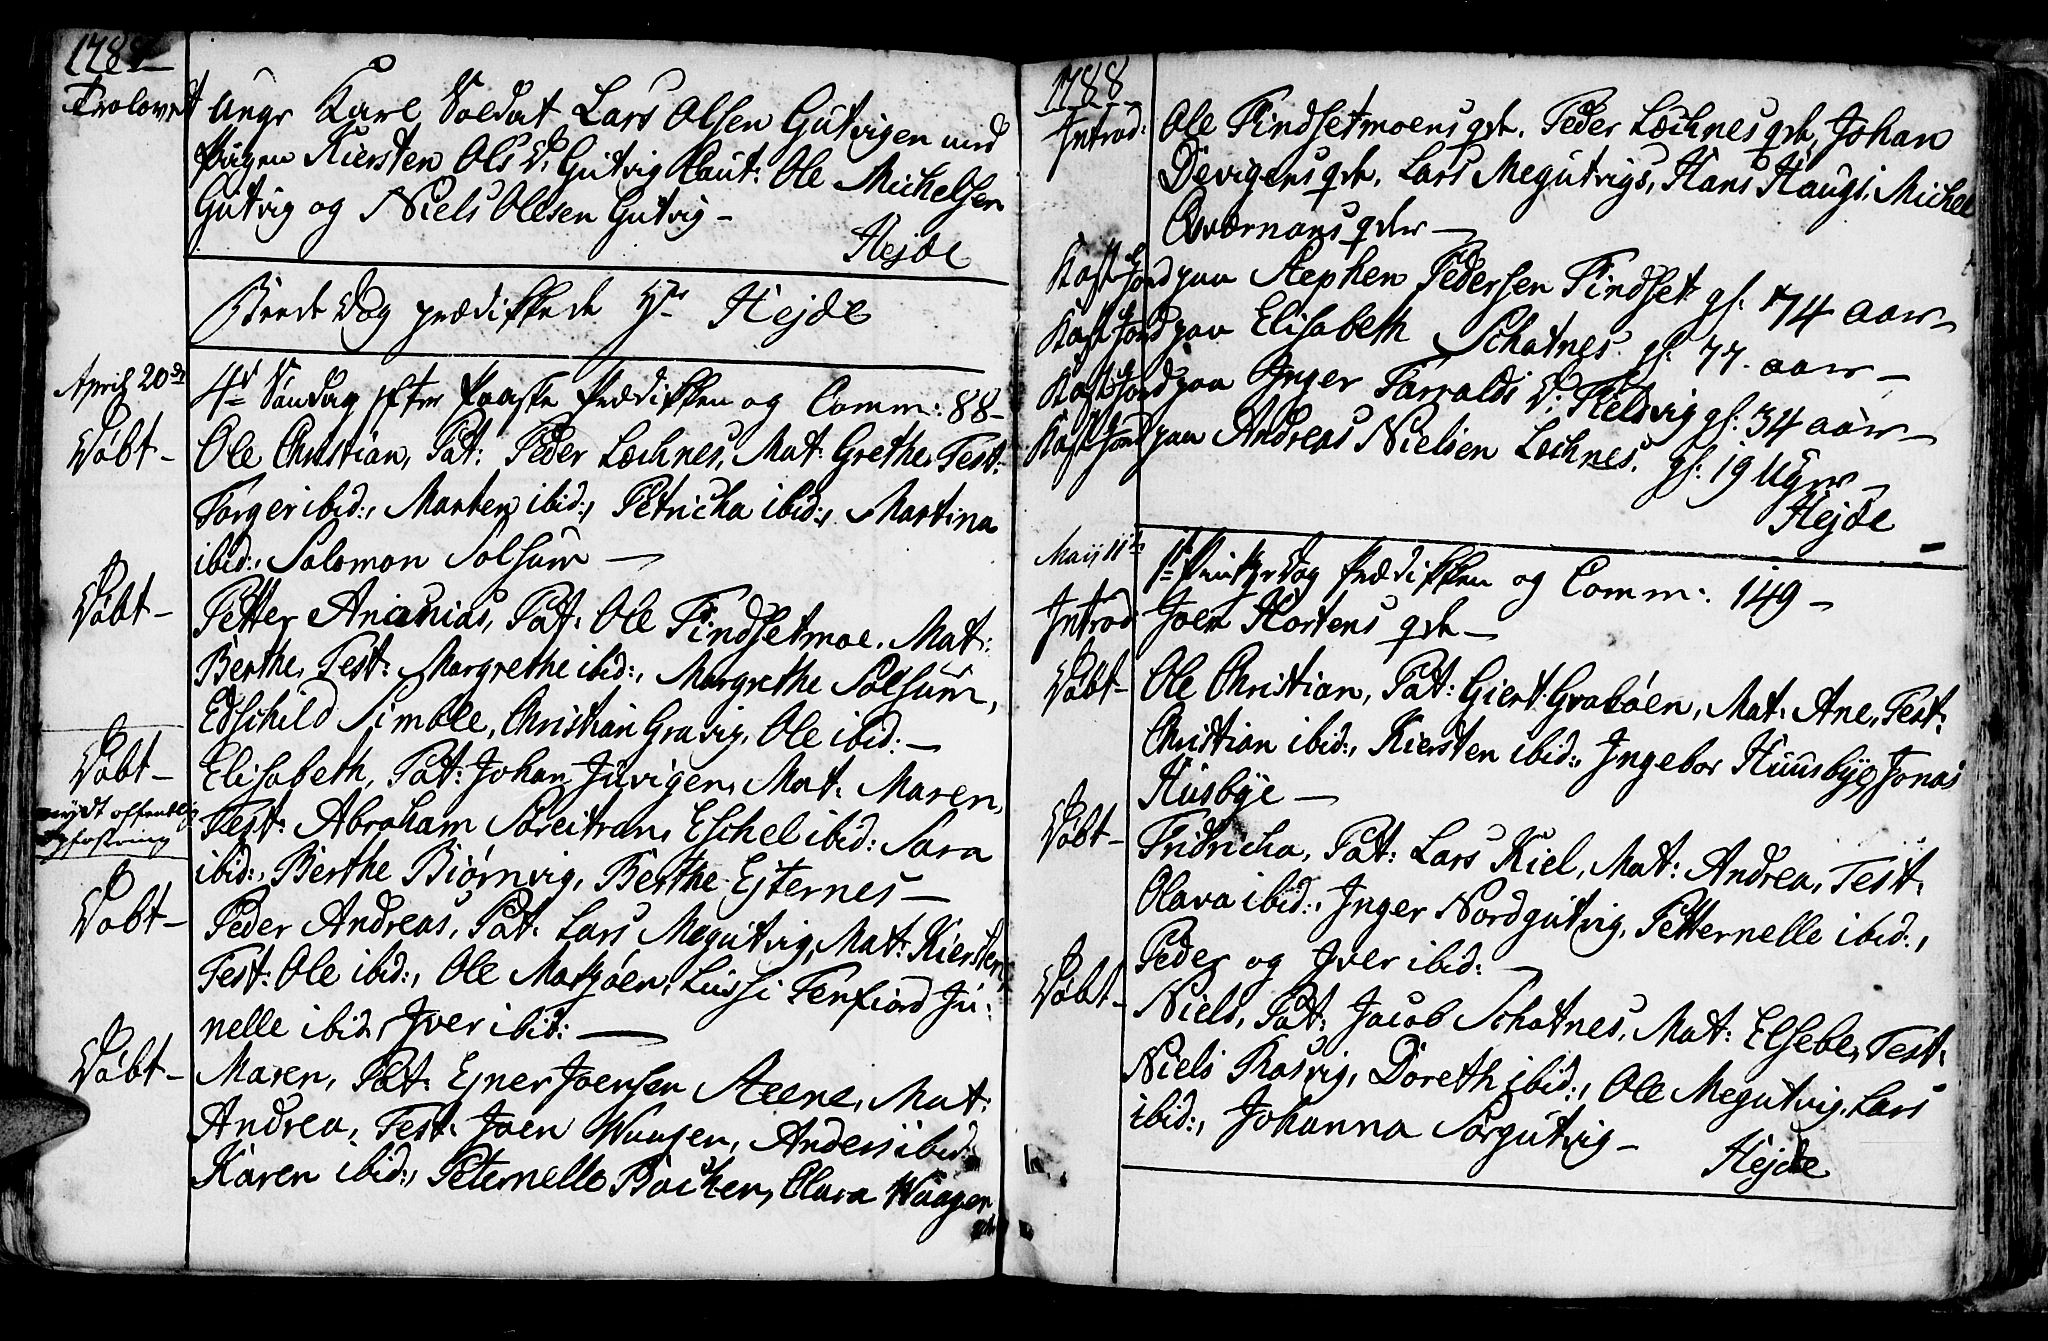 1788
Trolovet Unge Karl Soldat Lars Olsen Gutvigen med
Pigen Kiersten Ols D: Gutvig Caut: Ole Michelsen
Gutvig og Niels Olesen Gutvig —
Hejde
Beede Dag prædikkede Hr Hejde
April 20de 4de Søndag efter Paaske Prædikken og Comm: 88 —
Døbt — Ole Christian, Pat: Peder Lechnes, Mat: Grethe, Test:
Torger ibid:, Marten ibid:, Petricha ibid:, Martina
ibid:, Salomon Solsum —
Døbt — Petter Ananias, Pat: Ole Findsetmoe, Mat:
Berthe, Test: Margrethe ibid:, Margrethe Solsum,
Edschild Simble, Christian Gravig, Ole ibid: —
Døbt — Elisabeth, Pat: Johan Juvigen, Mat: Maren,
offentlig Test: Abraham Soreitran, Eschel ibid: Sara
ibid:, Berthe Biørnvig, Berthe Ejternes —
Døbt — Peder Andreas, Pat: Lars Megutvig, Mat: Kiersten,
Test: Ole ibid:, Ole Masøen, Lussi Terfiord Ju-
nelle ibid, Jver ibid: —
Døbt — Maren, Pat: Ejner Joensen Steene, Mat:
Andrea, Test: Joen Waagen, Anders ibid:
Karen ibid:, Peternelle Bochen, Olava Waagen
1788
Introd: Ole Findsetmoens qde, Peder Lechnes qde, Johan
Devigens qde, Lars Megutvigs, Hans Haugs, Michel
Qværnøns qder —
Kast Jord paa Stephen Pedersen Findset gl: 74 aar —
Kast Jord paa Elisabeth Schotnes gl: 77 aar —
Kast Jord paa Inger Tarralds D: Kielsvig gl: 34 aar —
Kast Jord paa Andreas Nielsen Lechnes. gl: 19 Uger —
Hejde
Maij 11te 1te Pintze Dag Prædikken og Comm: 149 —
Introd: Joen Hortens qde —
Døbt — Ole Christian, Pat: Giert Grakøen, Mat: Ane, Test:
Christian ibid:, Kiersten ibid:, Ingebor Huusbye, Jonas
Husbye —
Døbt — Fridricha, Pat: Lars Kiel, Mat: Andrea, Test:
Olava ibid:, Inger Nordgutvig, Petternelle ibid:,
Peder og Jver ibid: —
Døbt — Niels, Pat: Jacob Schotnes, Mat: Elsebe, Test:
Niels Rosvig, Doreth ibid:, Ole Megutvig, Lars
ibid:, Johanna Sørgutvig —
Hejde